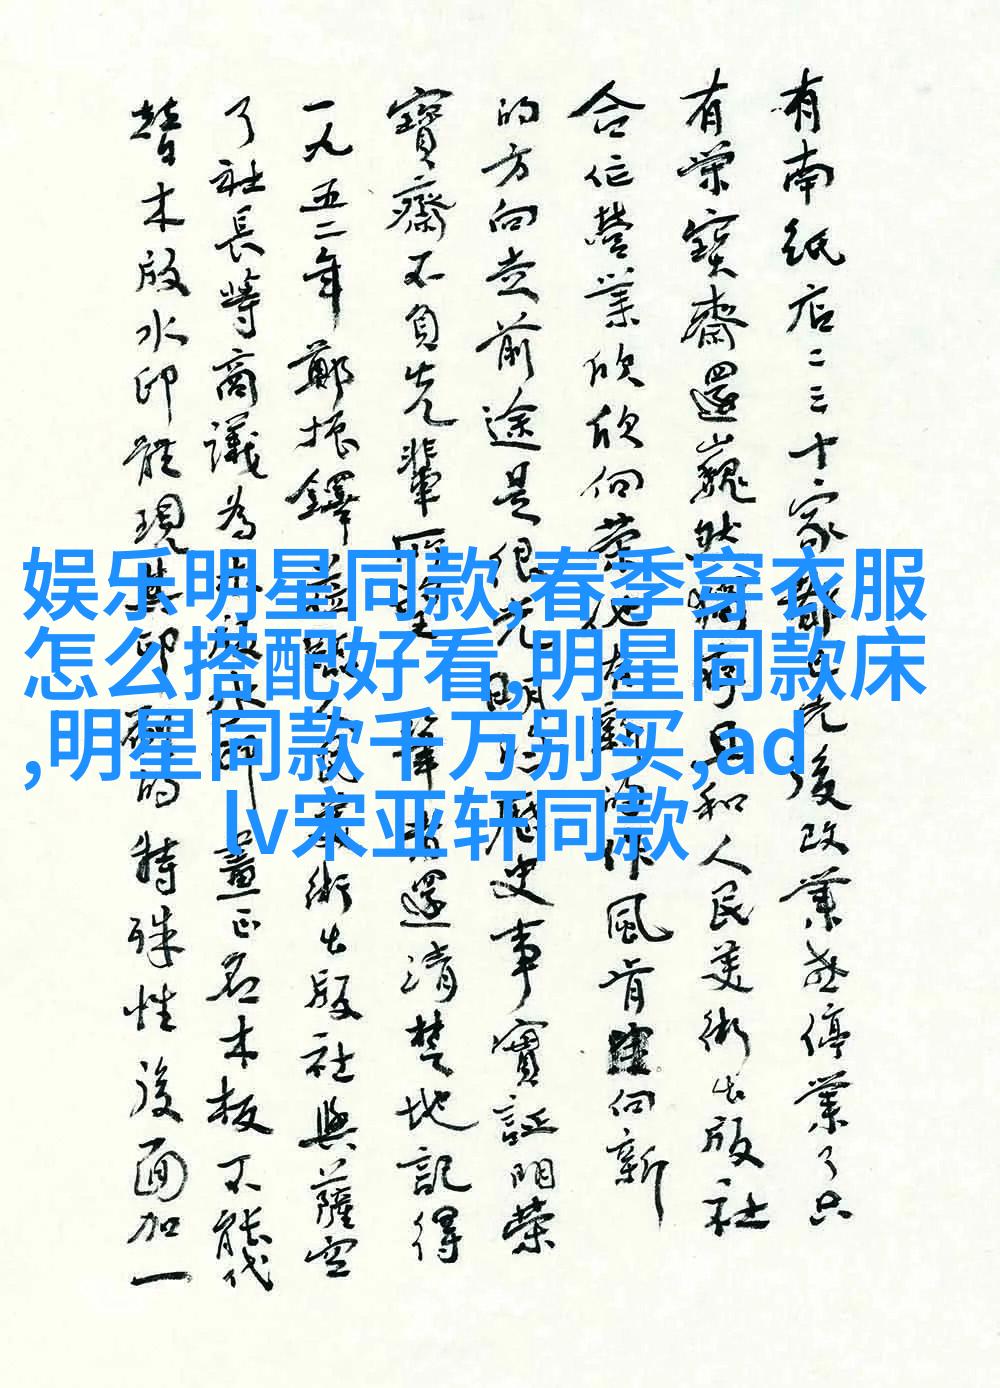 有南纸店二三十家都已先后改業或停業了只
有榮寶齋還巍然獨存且和人民美術出版社
合作營業欣欣向荣他在新的作風肯向新
的方向走前途是很光明的歷史事實証明榮
寶齋不負先輩所望筆者還清楚地記得
一九五二年鄭振鐸術出版社與薩空
了社長等商議為木版水印畫正名木板不能代
替木版水印能現其印刷的特殊性後面加一
娱乐明星同款,春季穿衣服
怎么搭配好看,明星同款床
,明星同款千万别买,ad
lv宋亚轩同款